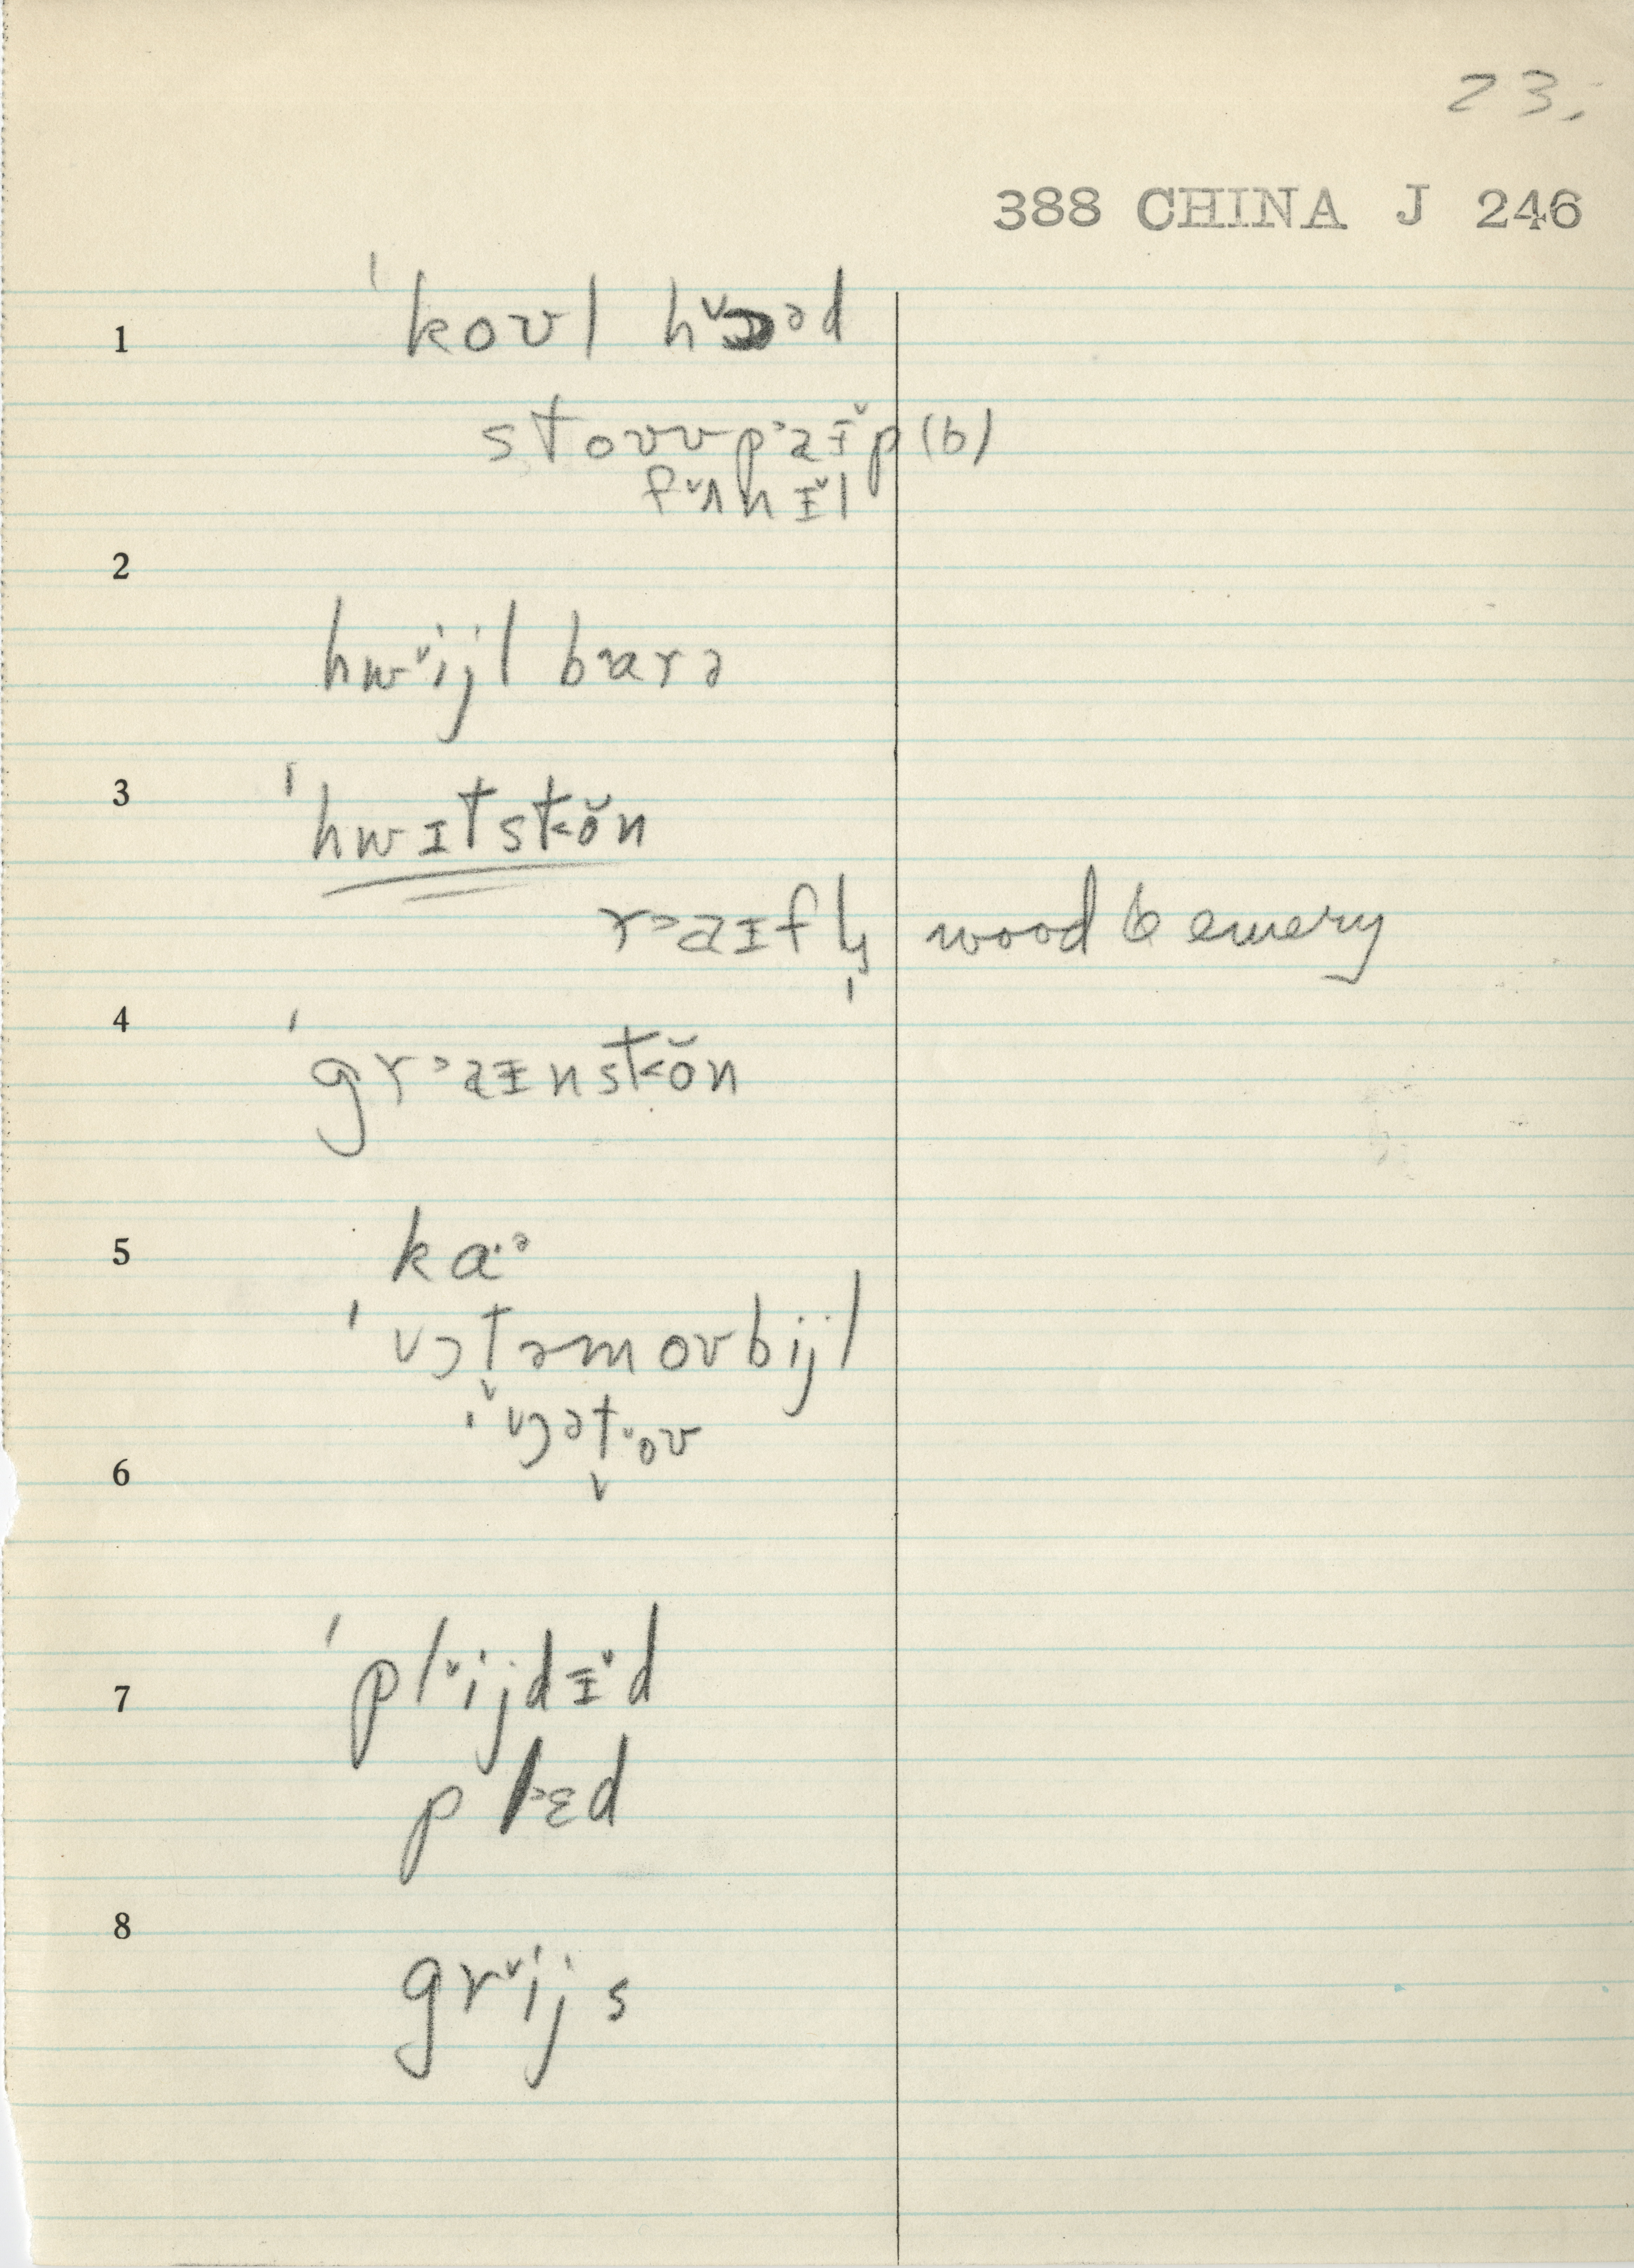 23.
388 CHINA J 246
1 ˈkoʊl hɔəd
stoʊv paɪp (b)
fʌnɪl
2
hwijl barə
3 ˈhwɪtstən
raɪfl̩ wood & emery
4 ˈgraɪnstən
5 kɑ·ə
ˈɔtəmoʊbijl
ˈɔətoʊ
6
7 ˈplijdɪd
plɛd
8 grijs